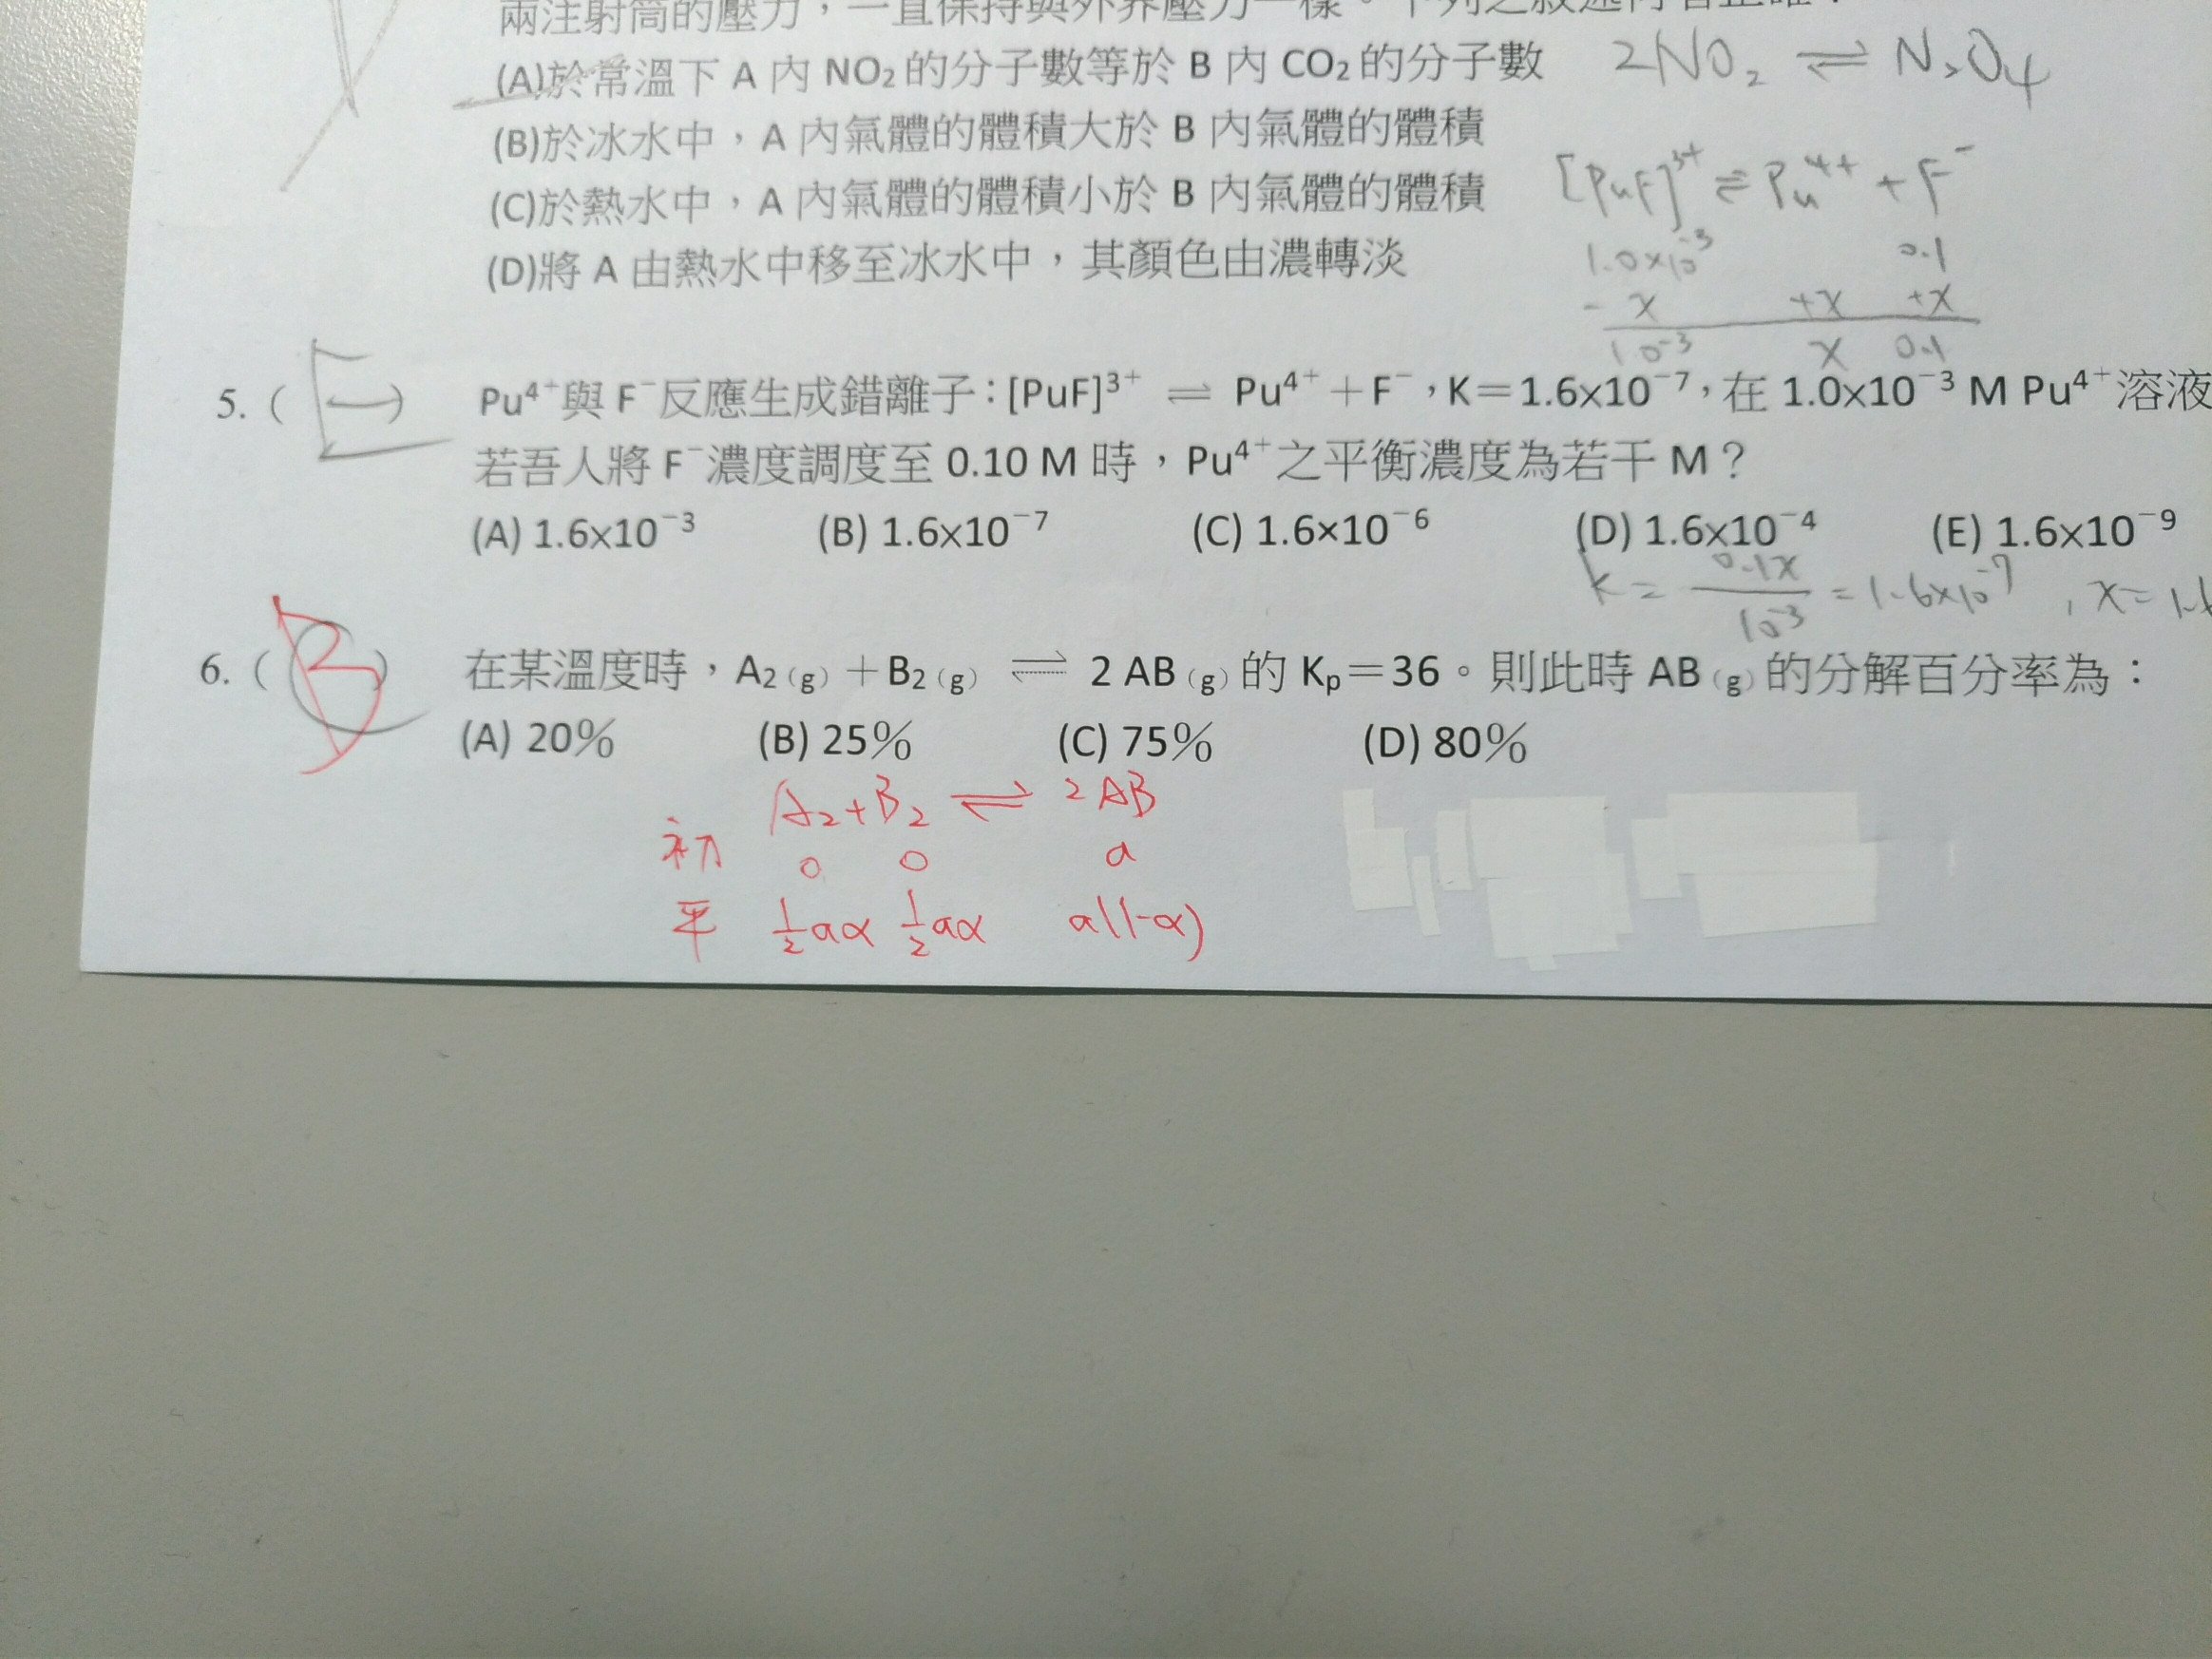 兩注射筒的壓力，一直保持與外界壓力一樣。下列之敘述何者正確？
(A)於常溫下 A 內 NO₂ 的分子數等於 B 內 CO₂ 的分子數
2NO₂ ⇌ N₂O₄
(B)於冰水中，A 內氣體的體積大於 B 內氣體的體積
(C)於熱水中，A 內氣體的體積小於 B 內氣體的體積
(D)將 A 由熱水中移至冰水中，其顏色由濃轉淡
[PuF]³⁺ ⇌ Pu⁴⁺ + F⁻
1.0×10⁻³ 0.1
- x +x +x
10⁻³ x 0.1
5. ( E ) Pu⁴⁺與 F⁻反應生成錯離子：[PuF]³⁺ ⇌ Pu⁴⁺＋F⁻，K＝1.6x10⁻⁷，在 1.0x10⁻³ M Pu⁴⁺溶液
若吾人將 F⁻濃度調度至 0.10 M 時，Pu⁴⁺之平衡濃度為若干 M？
(A) 1.6x10⁻³ (B) 1.6x10⁻⁷ (C) 1.6×10⁻⁶ (D) 1.6x10⁻⁴ (E) 1.6x10⁻⁹
k = 0.1x/10⁻³ = 1.6×10⁻⁷ , x =
6. ( B ) 在某溫度時，A₂₍g₎＋B₂₍g₎ ⇌ 2 AB₍g₎ 的 Kp＝36。則此時 AB₍g₎ 的分解百分率為：
(A) 20％ (B) 25％ (C) 75％ (D) 80％
A₂+B₂ ⇌ 2AB
初 0 0 a
平 ½aα ½aα a(1-α)